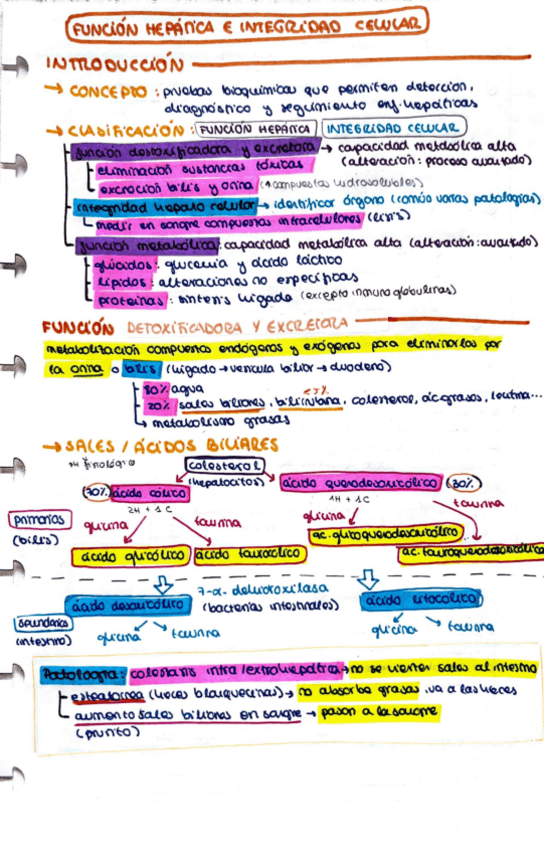 FUNCIÓN HEPÁTICA E INTEGRIDAD CELULAR
INTRODUCCIÓN
→ CONCEPTO: pruebas bioquímicas que permiten detección,
diagnóstico y seguimiento enf. hepáticas
→ CLASIFICACIÓN: FUNCIÓN HEPÁTICA INTEGRIDAD CELULAR
función destoxificadora y excretora → capacidad metabólica alta
eliminación sustancias tóxicas (alteración: proceso avanzado)
excreción bilis y orina (↑compuestos hidrosolubles)
integridad hepato celular → identificar órgano (común varias patologías)
medir en sangre compuestos intracelulares (lisis)
función metabólica: capacidad metabólica alta (alteración: avanzado)
glúcidos: glucemia y ácido láctico
lípidos: alteraciones no específicas
proteínas: síntesis hígado (excepto inmunoglobulinas)
FUNCIÓN DETOXIFICADORA Y EXCRETORA
metabolización compuestos endógenos y exógenos para eliminarlos por
la orina o bilis (hígado → vesícula biliar → duodeno)
80% agua <5%
20% sales biliares, bilirrubina, colesterol, ác. grasos, lecitina...
↳ metabolismo grasas
→ SALES / ÁCIDOS BILIARES
pH fisiológico colesterol
(70%) ácido cólico (hepatocitos) ácido quenodesoxicólico (30%)
2H + 1C 1H + 1C
primarios glicina taurina glicina taurina
(bilis) ac. glicoquenodesoxicólico
ácido glicólico ácido taurocólico ac. tauroquenodesoxicólico
7-α-dehidroxilasa
ácido desoxicólico (bacterias intestinales) ácido litocólico
secundarios
(intestino) glicina taurina glicina taurina
Patología: colestasis intra/extrahepática → no se vierten sales al intestino
esteatorrea (heces blanquecinas) → no absorbe grasas, va a las heces
aumento sales biliares en sangre → pasan a la sangre
(prurito)